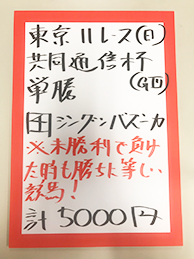 東京11レース(日)
共同通信杯
(GⅢ)
単勝
④ジングンバズーカ
※未勝利で負け
た時も勝ちに等しい
競馬!
計5000円